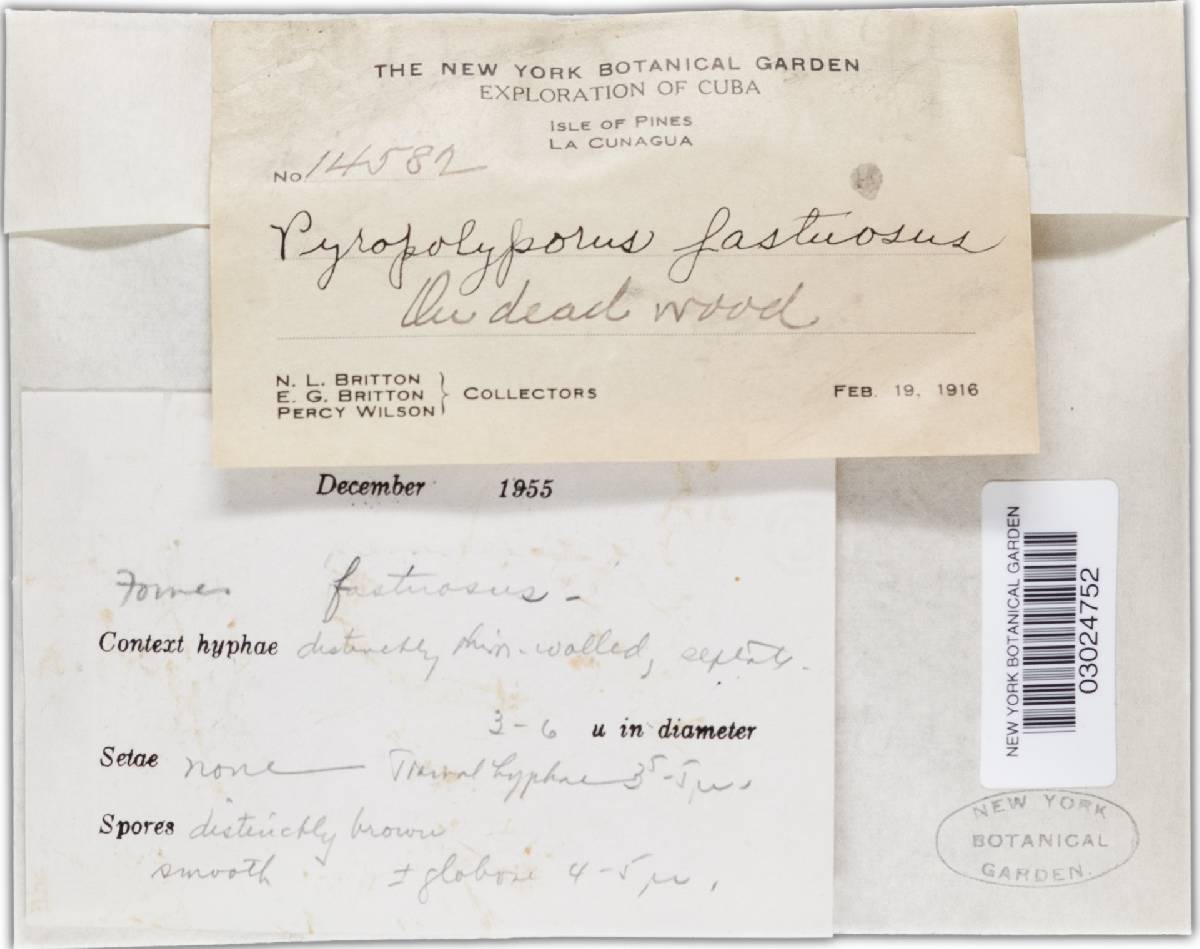 THE NEW YORK BOTANICAL GARDEN
EXPLORATION OF CUBA
ISLE OF PINES
LA CUNAGUA
No 14582
Pyropolyporus fastuosus
On dead wood
N. L. BRITTON
E. G. BRITTON
PERCY WILSON
COLLECTORS
FEB. 19, 1916
December 1955
Fomes fastuosus -
Context hyphae distinctly thin-walled, septate.
3-6 u in diameter
Setae none Tramal hyphae 3⁵-5μ.
Spores distinctly brown
smooth ± globose 4-5μ.
NEW YORK BOTANICAL GARDEN
03024752
NEW YORK
BOTANICAL
GARDEN.